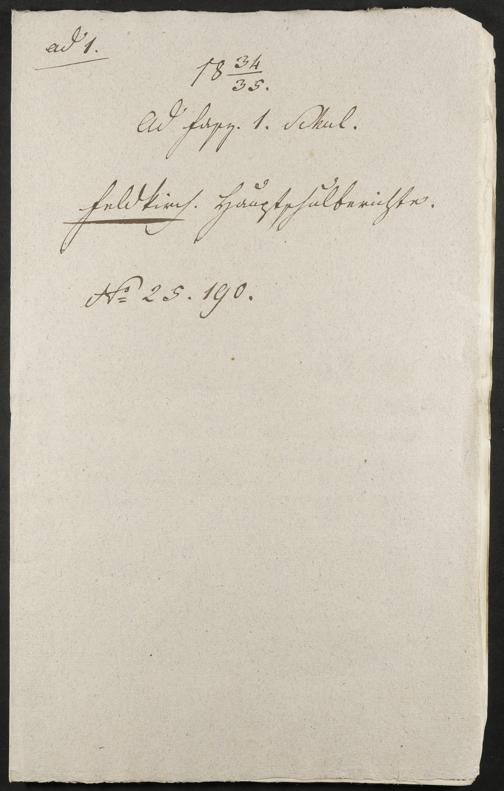 ad 1.
18 34/35.
ad fasz. 1. Schul.
Feldkirch. Hauptschulberichte.
No 25. 190.